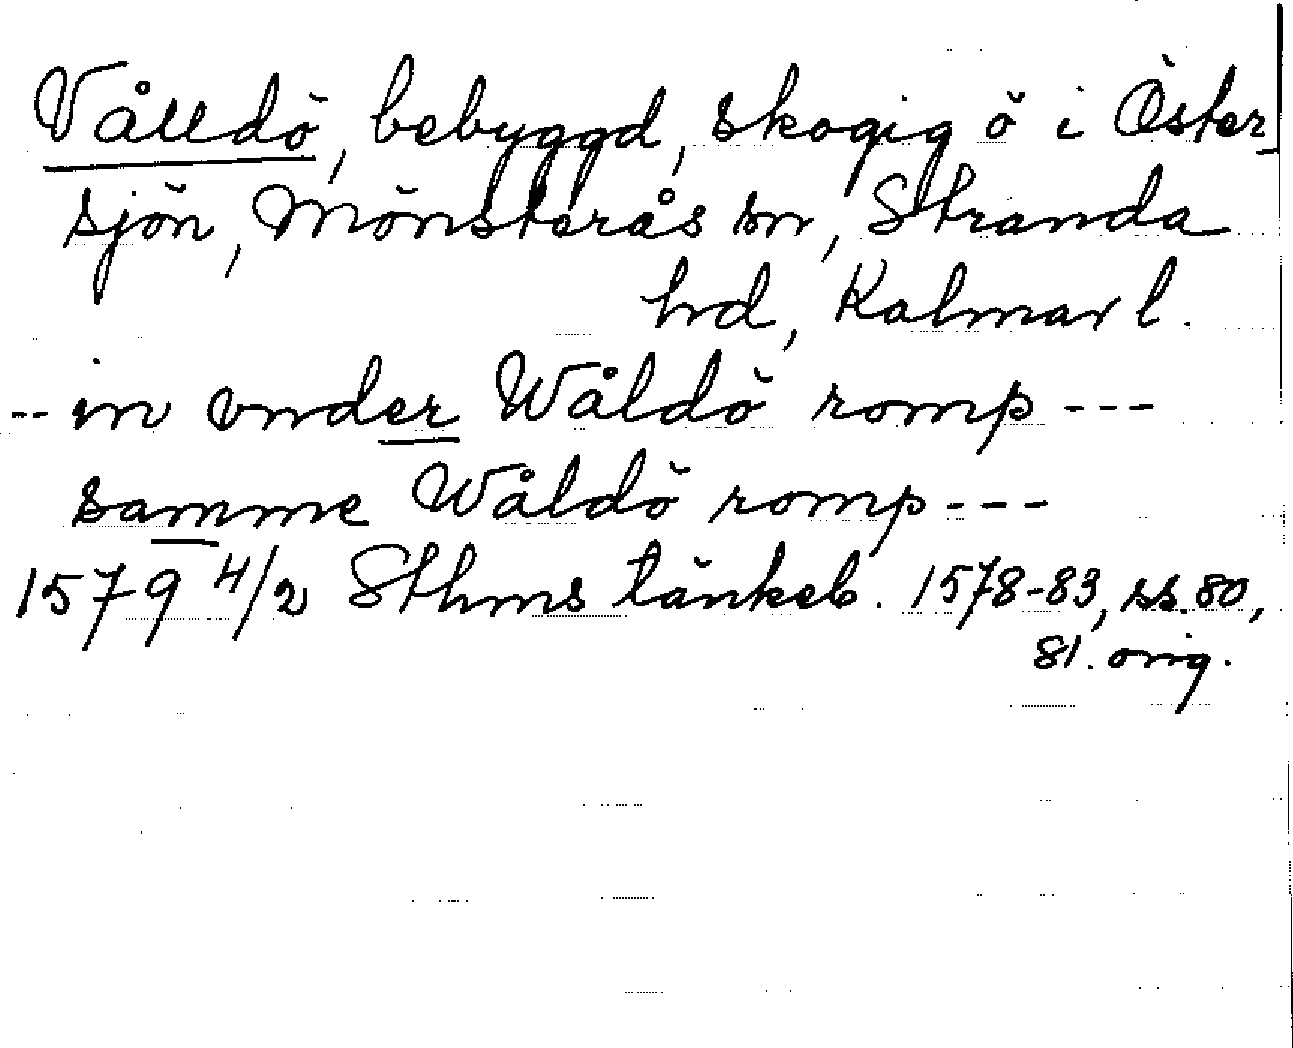 Vålldö, bebyggd, skogig ö i Öster-
sjön, Mönsterås sn, Stranda
hd, Kalmar l.
-- in under Wåldö romp ---
samme Wåldö romp ---
1579 4/2 Sthms tänkeb. 1578-83, ss. 80,
81. orig.